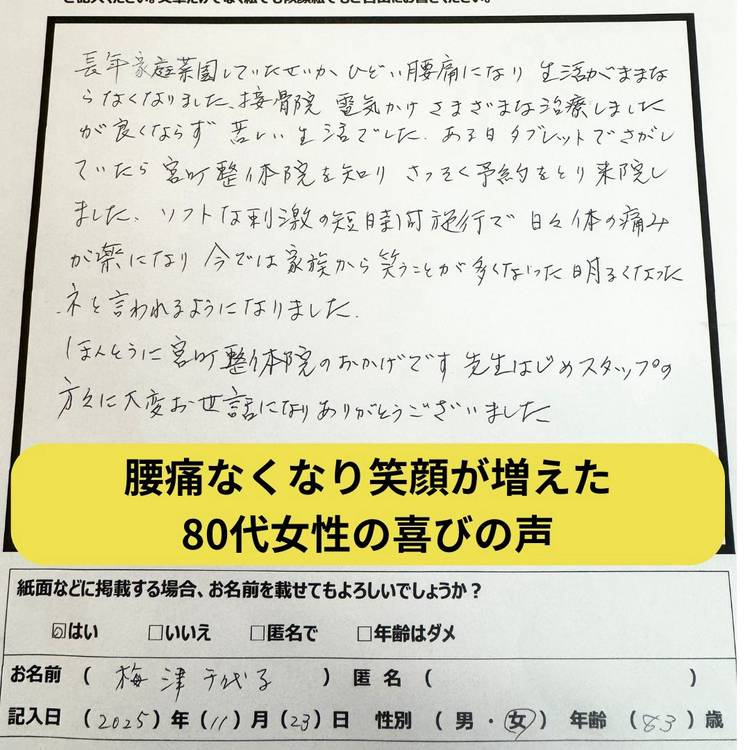 ご記入ください。文章だけでなく絵でも似顔絵でもご自由にお書きください。
長年家庭菜園していたせいか ひどい腰痛になり 生活がままな
らなくなりました、接骨院 電気かけ さまざまな治療しました
が良くならず 苦しい生活でした、ある日タブレットでさがし
ていたら宮町整体院を知り さっそく予約をとり来院し
ました、ソフトな刺激の短時間施行で 日々体の痛み
が楽になり 今では家族から笑うことが多くなった明るくなった
ネと言われるようになりました、
ほんとうに宮町整体院のおかげです 先生はじめスタッフの
方々に大変お世話になりありがとうございました
腰痛なくなり笑顔が増えた
80代女性の喜びの声
紙面などに掲載する場合、お名前を載せてもよろしいでしょうか？
☑はい □いいえ □匿名で □年齢はダメ
お名前 ( 梅津千代子 ) 匿名 ( )
記入日 (2025) 年 (11) 月 (23) 日 性別 ( 男・女 ) 年齢 (83) 歳